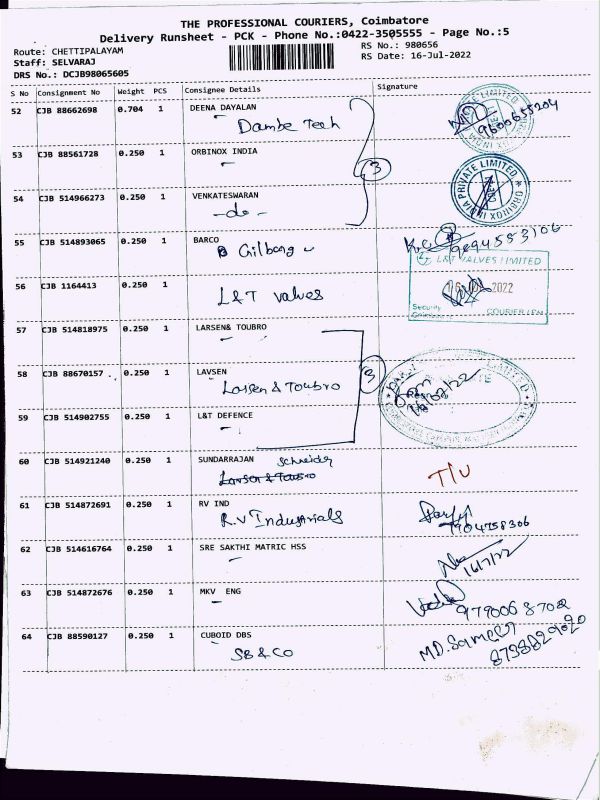 THE PROFESSIONAL COURIERS, Coimbatore
Delivery Runsheet - PCK - Phone No.:0422-3505555 - Page No.:5
Route: CHETTIPALAYAM
RS No.: 980656
Staff: SELVARAJ
RS Date: 16-Jul-2022
DRS No.: DCJB98065605
S No Consignment No Weight PCS Consignee Details Signature
52 CJB 88662698 0.704 1 DEENA DAYALAN
Dambe Tech
9600655204
53 CJB 88561728 0.250 1 ORBINOX INDIA
3
ORBINOX INDIA PRIVATE LIMITED
54 CJB 514966273 0.250 1 VENKATESWARAN
-do-
55 CJB 514893065 0.250 1 BARCO
Gilbarg
9894553106
56 CJB 1164413 0.250 1
L&T valves
L&T VALVES LIMITED
2022
Security
COURIER
57 CJB 514818975 0.250 1 LARSEN& TOUBRO
58 CJB 88670157 0.250 1 LAVSEN
Larsen & Toubro
3
59 CJB 514902755 0.250 1 L&T DEFENCE
60 CJB 514921240 0.250 1 SUNDARRAJAN Schneider
Larsen & Toubro
T/U
61 CJB 514872691 0.250 1 RV IND
R.V Industrials
7904758306
62 CJB 514616764 0.250 1 SRE SAKTHI MATRIC HSS
16/7/22
63 CJB 514872676 0.250 1 MKV ENG
9790068702
64 CJB 88590127 0.250 1 CUBOID DBS
SB & CO
MD.Sameer
8798829020